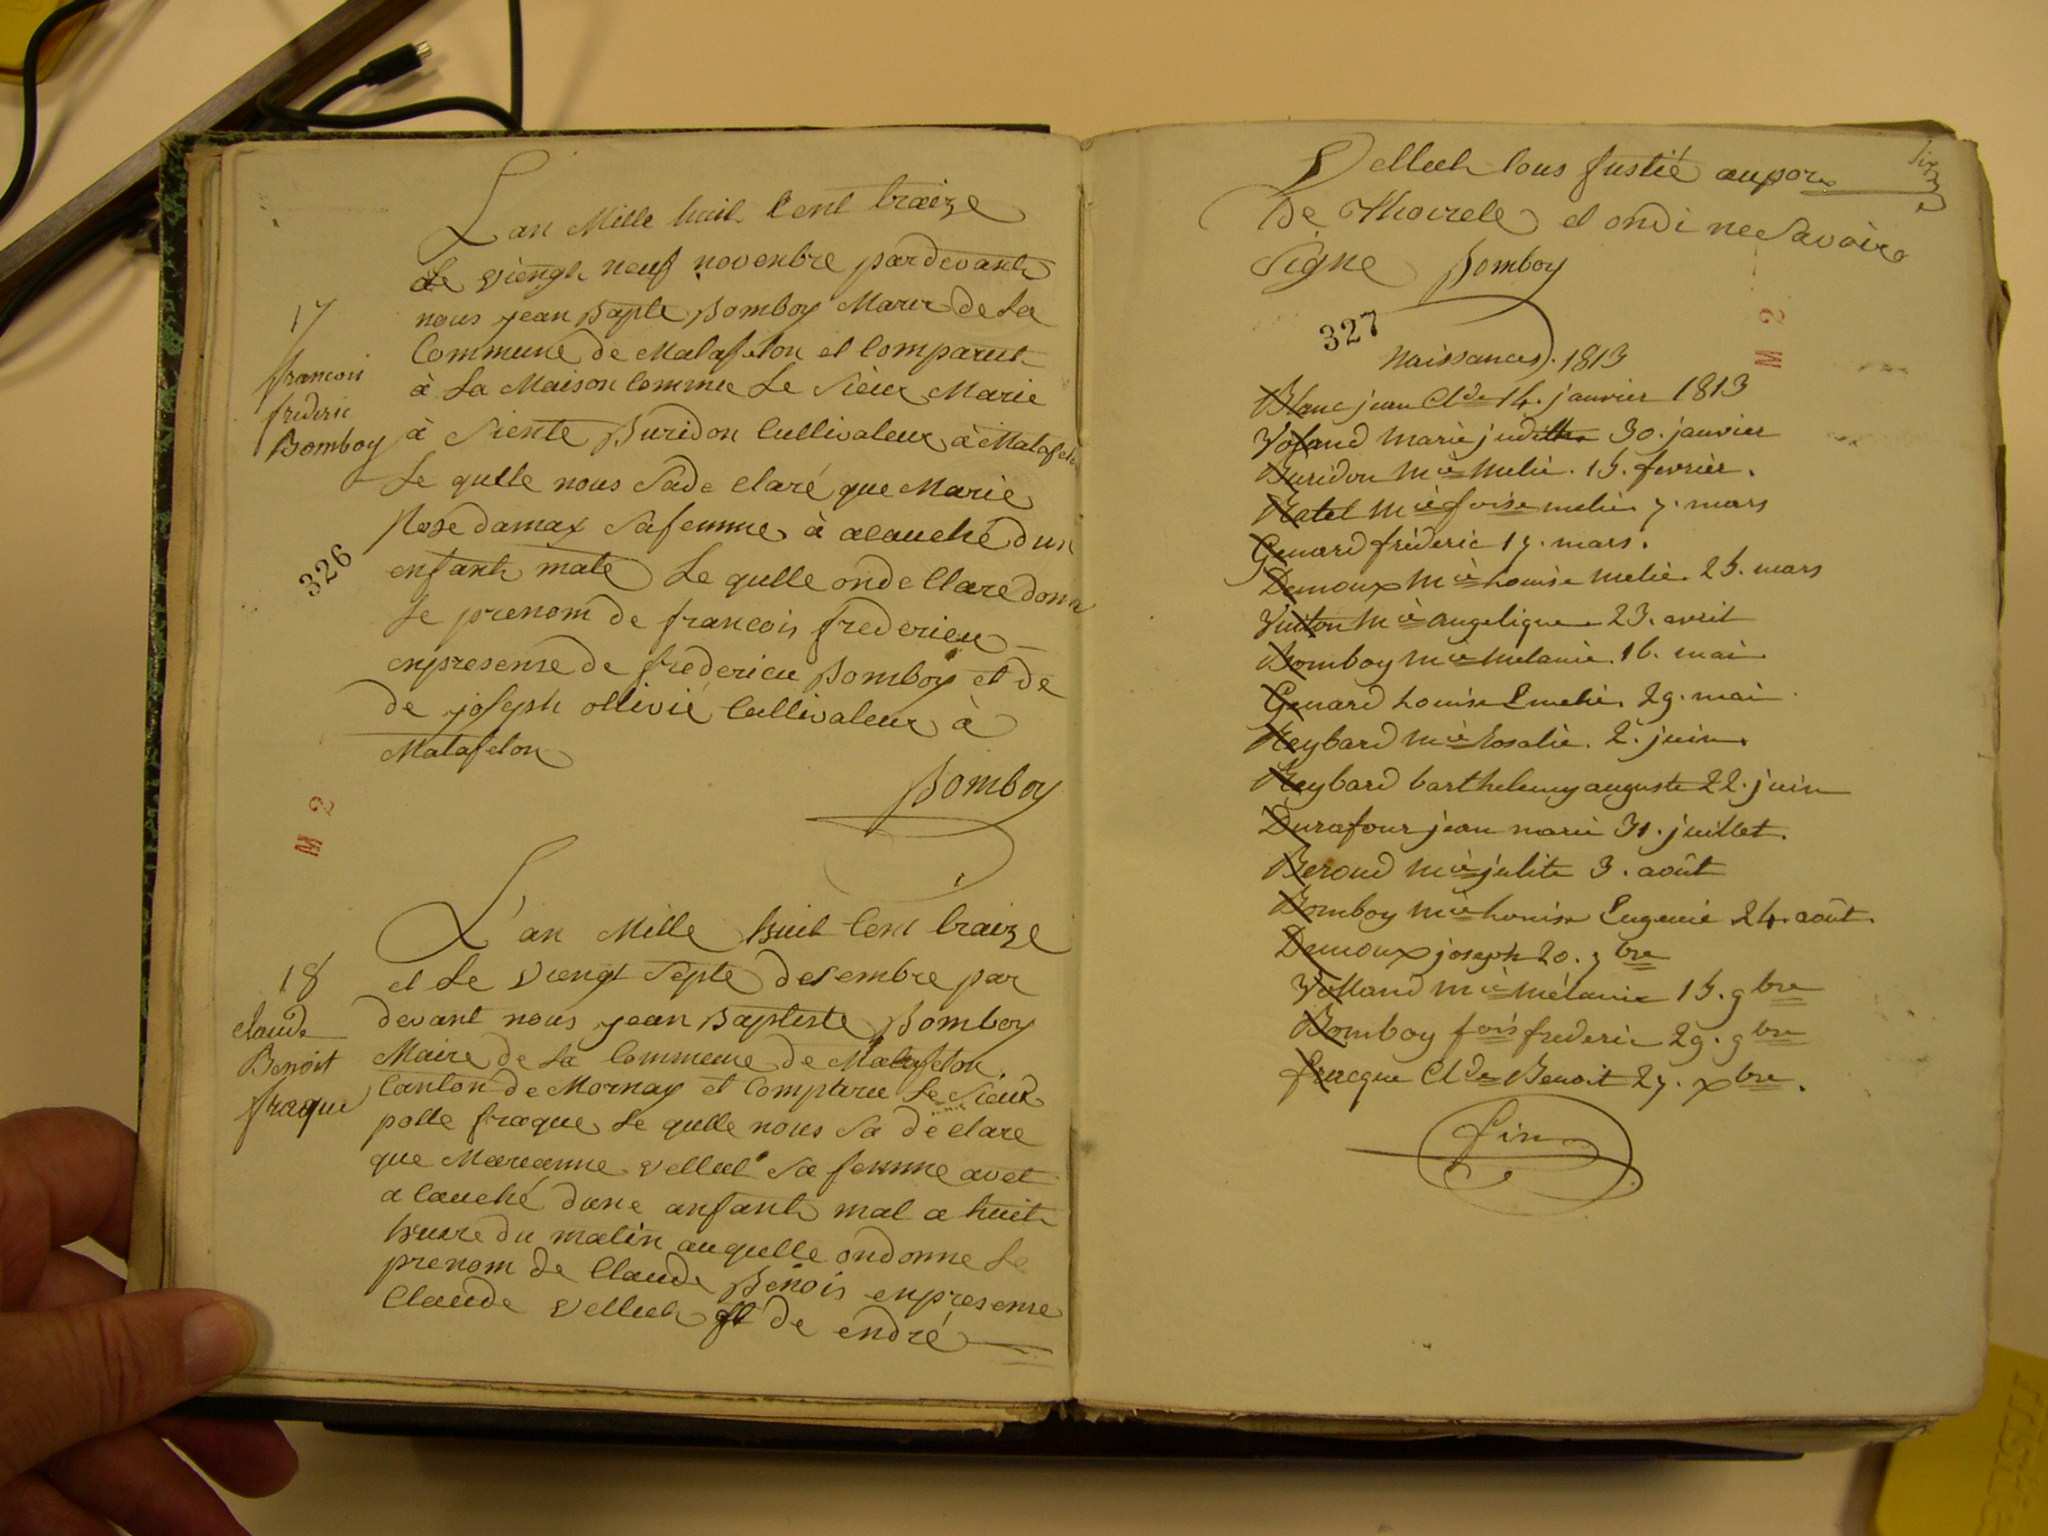 L'an Mille huit Cent traize
Le viengt neuf novenbre pardevant
nous jean Bapte Bomboy Marir de La
Commune de Matafelon et Comparut
à La Maison Commue Le Sieur Marie
à Siente Buridon Cullivateur à Matafelon
Le qulle nous Sade claré que Marie
Rose damax Safemme à acauché dun
enfant male Le qulle onde Clare donn
Le prenom de francois frederieu
enpresense de frederieu Bomboy et de
de joseph ollivié Cullivateur à
Matafelon
Bomboy
17
francois
frederic
Bomboy
326
M 2
L'an Mille huit Cent traize
et Le viengt Septe desembre par
devant nous jean Baptiste Bomboy
Maire de La Commeune de Matafelon
Canton de Mornay et Comparue Le Sieur
polle fraque Le qulle nous Sa de clare
que Marianne Vellut Sa femme avet
a Cauché dune anfant mal a huit
huere du matin auqulle ondonne Le
prenom de Claude Benois enpresense
Claude Velluet et de endré
18
claude
Benoit
fraque
Velluet tous fustié aupor
De Thoirete et ondi nee Savoire
Signe Bomboy
327
M 2
Naissances. 1813
Blanc jean Cl.de 14. janvier 1813
Voland marie judith 30. janvier
Buridon m.ie melie. 15. fevrier.
Ratel m.ie foise melie 7. mars
Genard fréderic 17. mars.
Demoux m.ie Louise melie. 25. mars
Vuiton m.ie angelique 23. avril
Bomboy m.ie melanie. 16. mai
Genard Louise Emelie. 29. mai
Reybard m.ie Rosalie. 2. juin.
Reybard barthelemy auguste 22. juin
Durafour jean marie 31. juillet.
Beroud m.ie julite 3. août
Bomboy m.ie Louise Eugenie 24. août.
Demoux joseph 20. 7bre
Volland m.ie mélanie 15. 9bre
Bomboy fois frederic 29. 9bre
fracque Cl.de Benoit 27. xbre.
fin